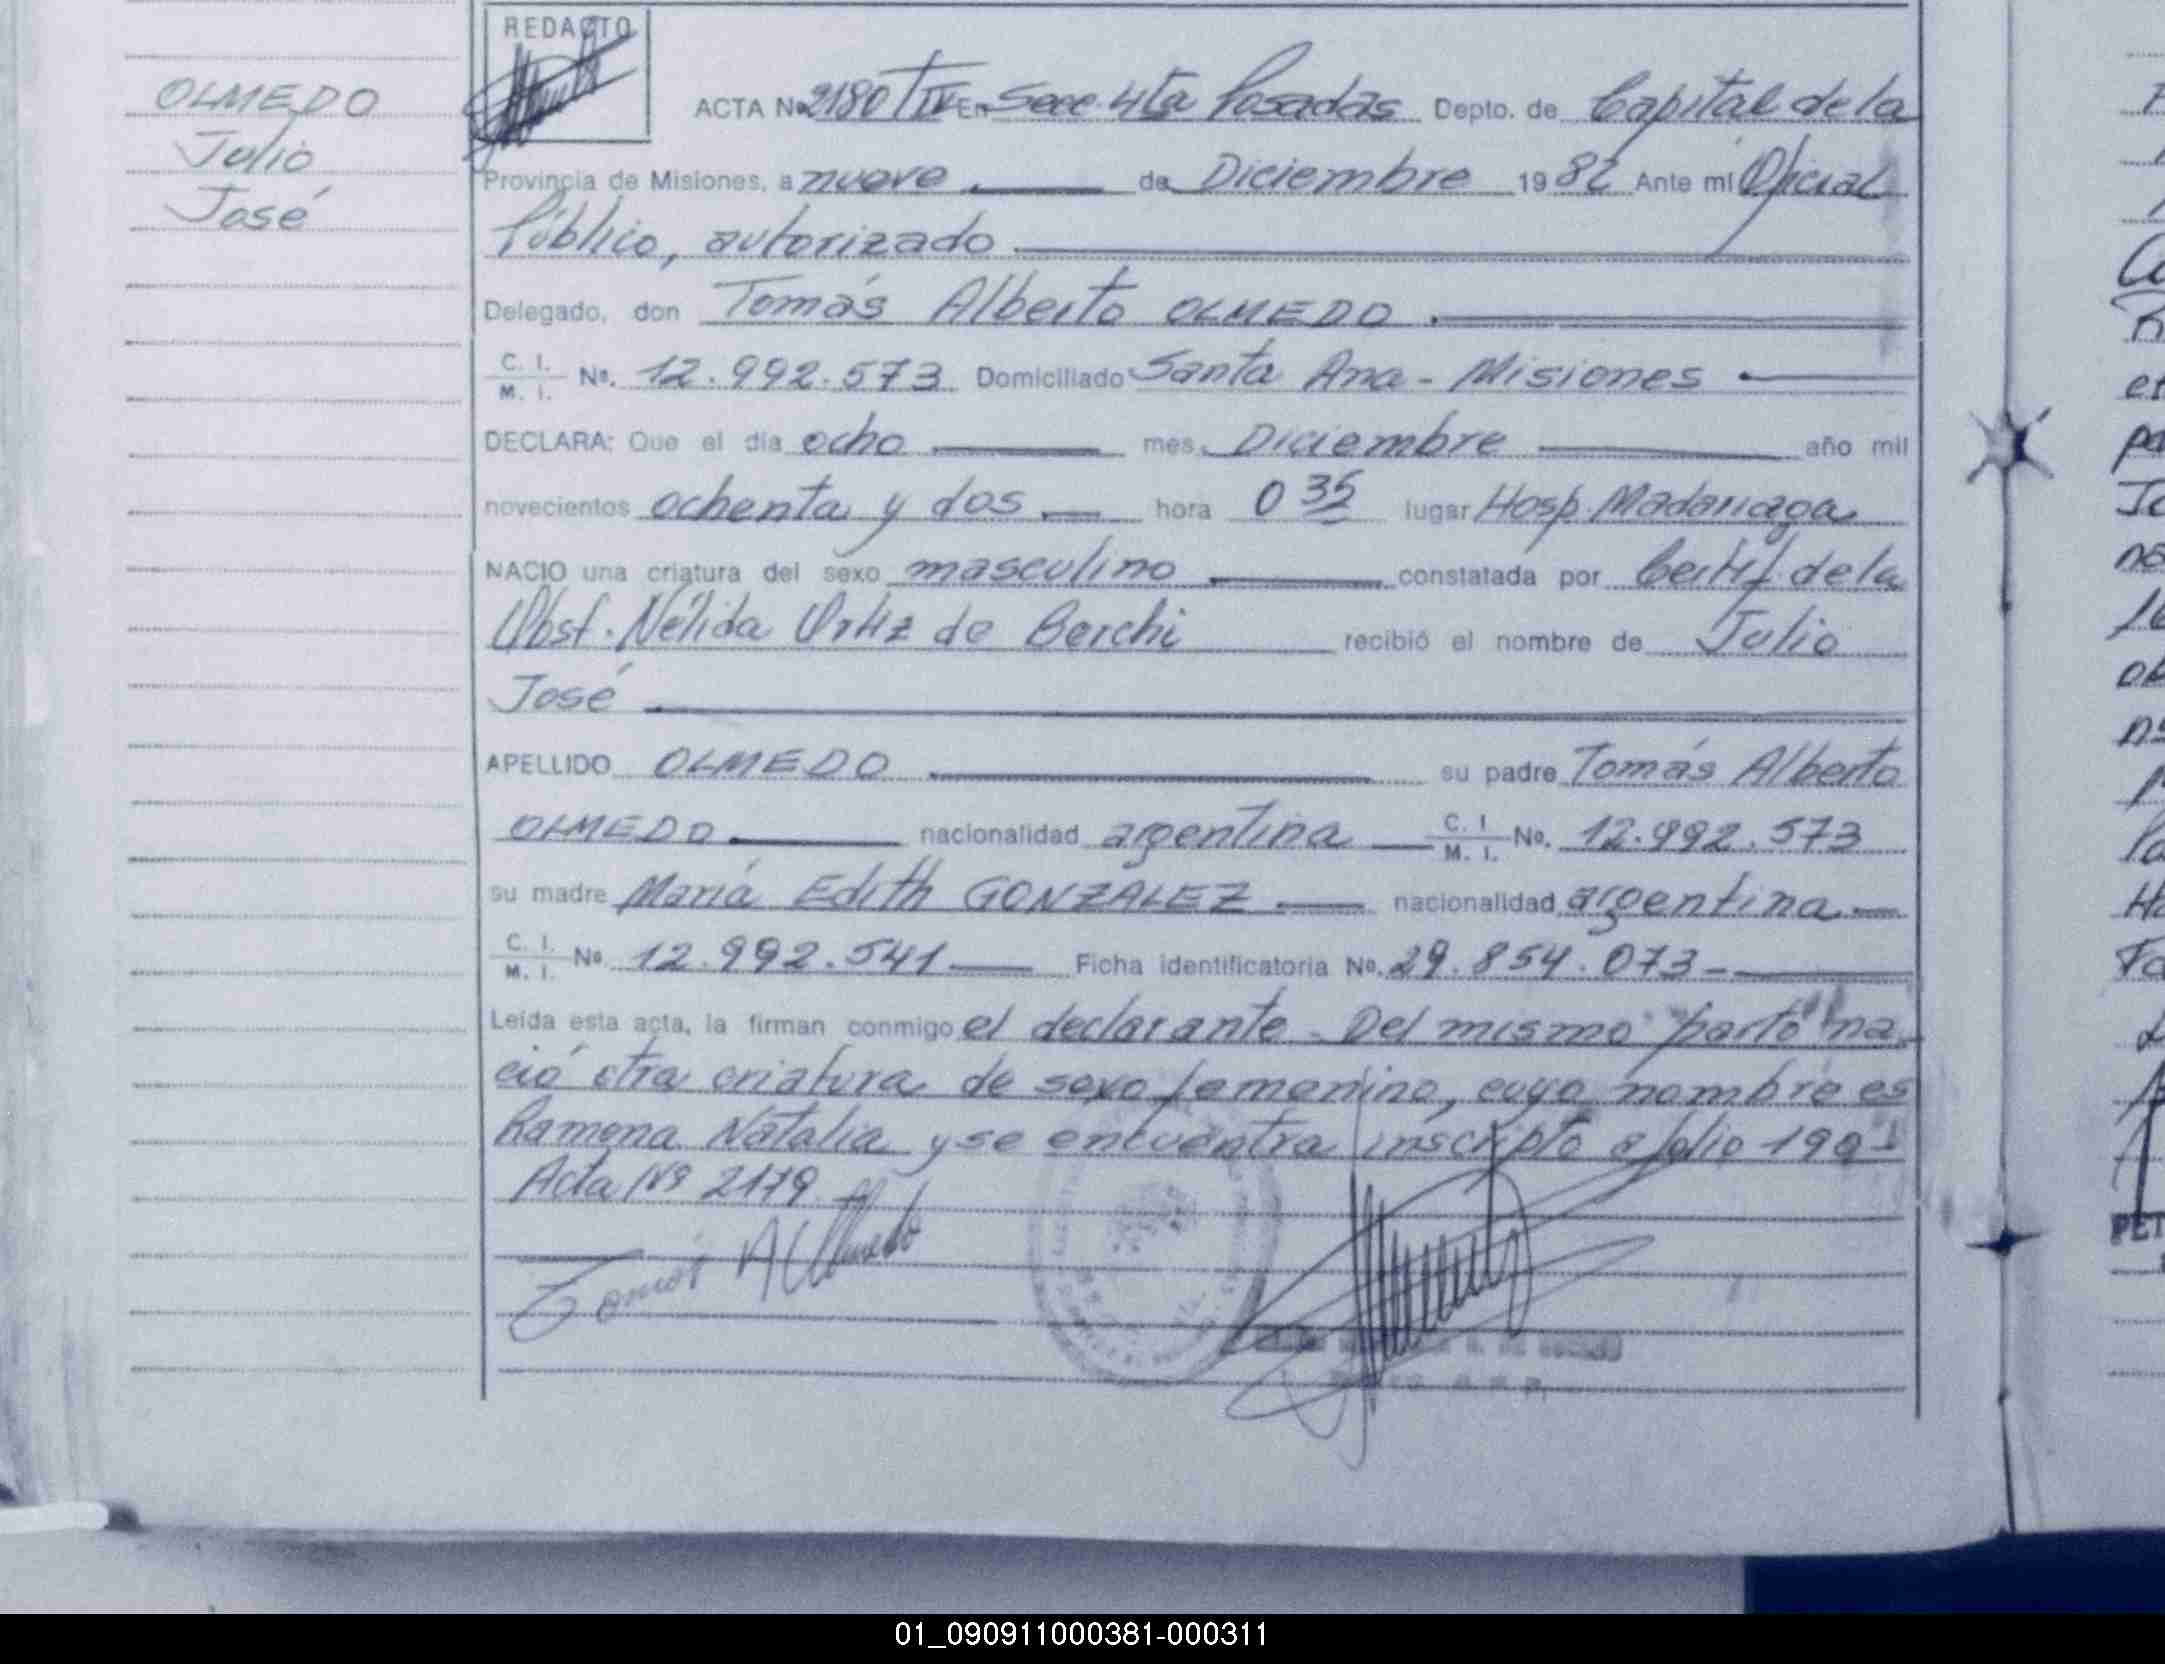 OLMEDO
Julio
José
REDACTO
ACTA Nº 2180 TIV En Secc. 4ta Posadas Depto. de Capital de la
Provincia de Misiones, a nueve de Diciembre 1982 Ante mí Oficial
Público, autorizado
Delegado, don Tomás Alberto OLMEDO
C. I. / M. I. Nº. 12.992.573 Domiciliado Santa Ana - Misiones
DECLARA: Que el día ocho mes, Diciembre año mil
novecientos ochenta y dos hora 0 35 lugar Hosp. Madariaga
NACIO una criatura del sexo masculino constatada por Certif. de la
Obst. Nélida Ortiz de Berchi recibió el nombre de Julio
José
APELLIDO OLMEDO su padre Tomás Alberto
OLMEDO nacionalidad argentina C. I. / M. I. Nº. 12.992.573
su madre María Edith GONZALEZ nacionalidad argentina
C. I. / M. I. Nº 12.992.541 Ficha identificatoria Nº. 29.854.073-
Leída esta acta, la firman conmigo el declarante. Del mismo parto na-
ció otra criatura de sexo femenino, cuyo nombre es
Ramona Natalia y se encuentra inscripto a folio
Acta Nº 2179
Tomás A Olmedo
01_090911000381-000311